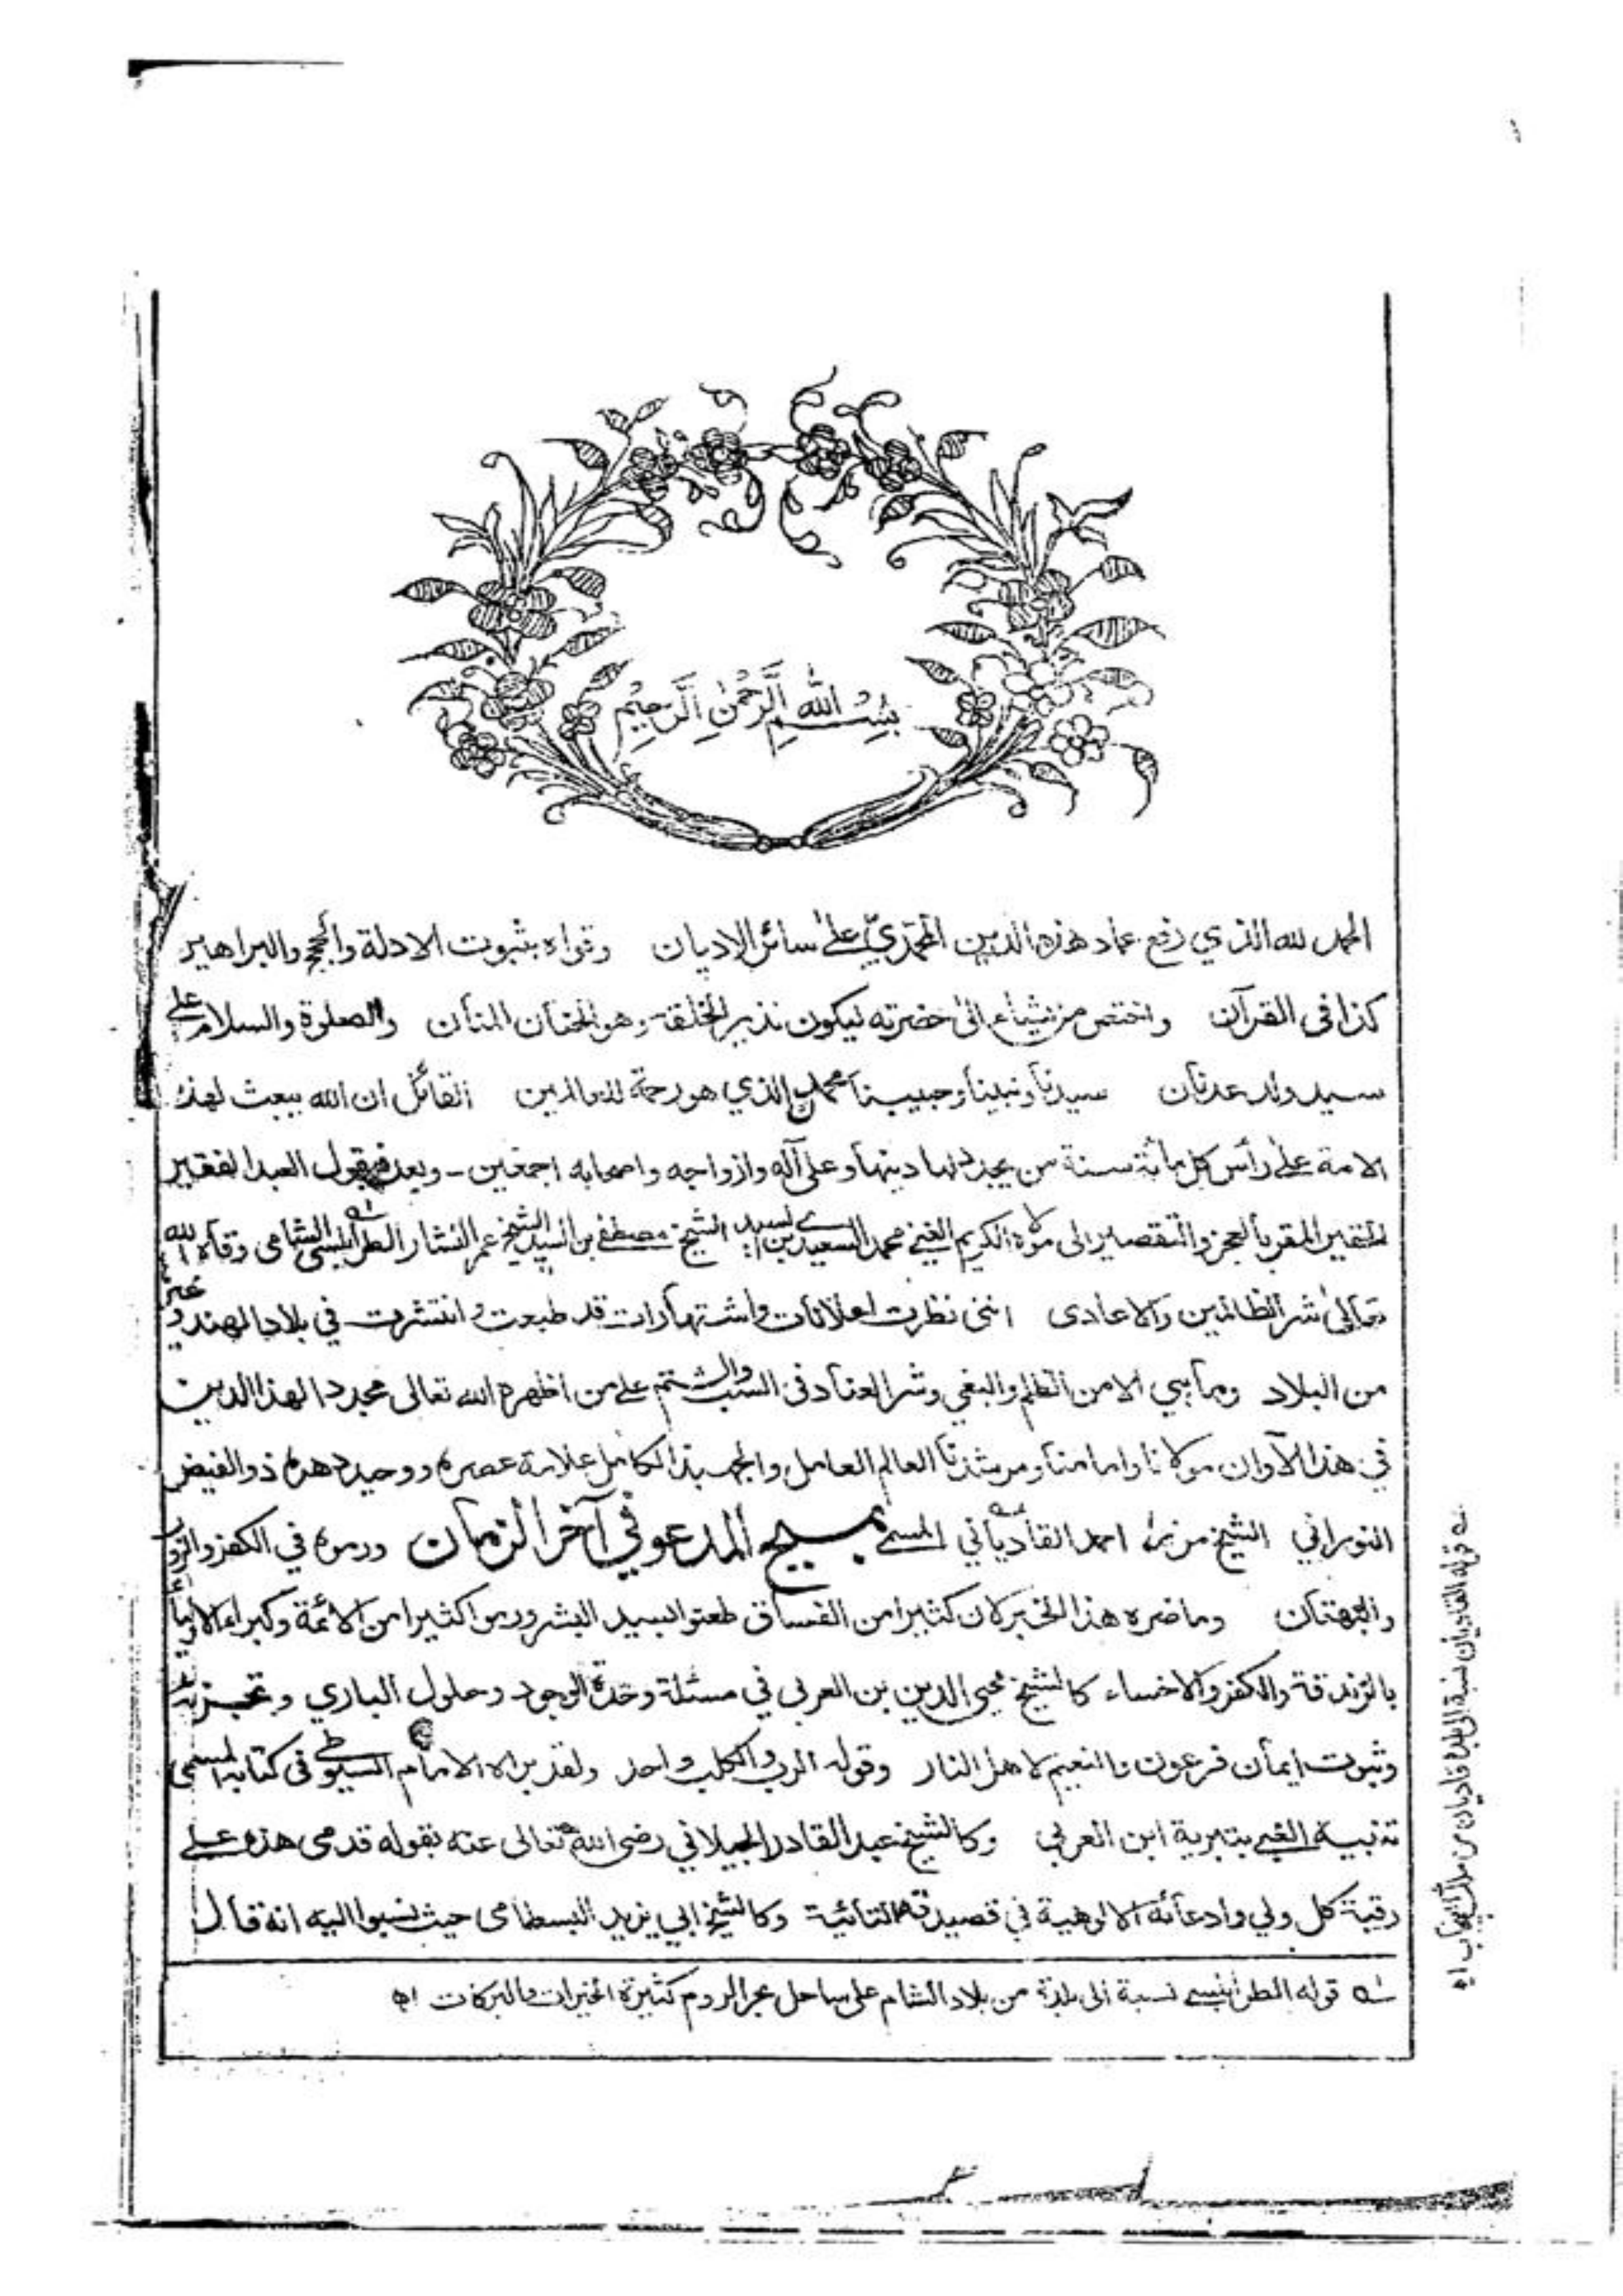 بِسْمِ اللهِ الرَّحْمٰنِ الرَّحِيْمِ
الحمد لله الذي رفع عماد هذه الدين المحمّديّ على سائر الاديان وقواه بثبوت الادلة والحجج والبراهين
كذا في القرآن واختص من يشاء الى حضرته ليكون نذير الخلقه وهو الحنان المنان والصلوة والسلام على
سيد ولد عدنان سيدنا ونبينا وحبيبنا محمد الذي هو رحمة للعالمين القائل ان الله يبعث لهذه
الامة على رأس كل مائة سنة من يجدد لها دينها وعلى آله وازواجه واصحابه اجمعين - وبعد فيقول العبد الفقير
الحقير المقر بالعجز والتقصير الى مولاه الكريم الغني محمد السعيدي بن السيد الشيخ مصطفى بن السيد الشيخ عمر النشار الطرابلسي الشامي وقاه الله
تعالى شر الظالمين والاعادى انني نظرت اعلانات واشتهارات قد طبعت وانتشرت في بلاد الهند وغير
من البلاد وما هي الا من الظلم والبغي وشر العناد في السب والشتم على من اظهره الله تعالى مجددا لهذا الدين
في هذا الآوان مولانا وامامنا ومرشدنا العالم العامل والجهبذ الكامل علامة عصره ووحيد دهره ذو الفيض
النوراني الشيخ مرزا احمد القادياني المسمى بمسيح المدعو في آخر الزمان ورموه في الكفر والزور
والبهتان وما ضره هذا الخبر لان كثيرا من الفساق طعنوا بسيد البشر ورموا كثيرا من الائمة وكبراء الاولياء
بالزندقة والكفر والاخساء كالشيخ محي الدين بن العربي في مسئلة وحدة الوجود وحلول الباري
وثبوت ايمان فرعون والنعيم لاهل النار وقوله الرب والكلب واحد ولقد براه الامام السيوطي في كتابه المسمى
تنبيه الغبي بتبرية ابن العربي وكالشيخ عبد القادر الجيلاني رضي الله تعالى عنه بقوله قدمي هذه على
رقبة كل ولي وادعائه الالوهية في قصيدته التائية وكالشيخ ابي يزيد البسطامي حيث نسبوا اليه انه قال
له قوله الطرابلسي نسبة الى بلدة من بلاد الشام على ساحل بحر الروم كثيرة الخيرات والبركات اه
قوله القادياني نسبة الى بلدة قاديان من ملك پنجاب اه